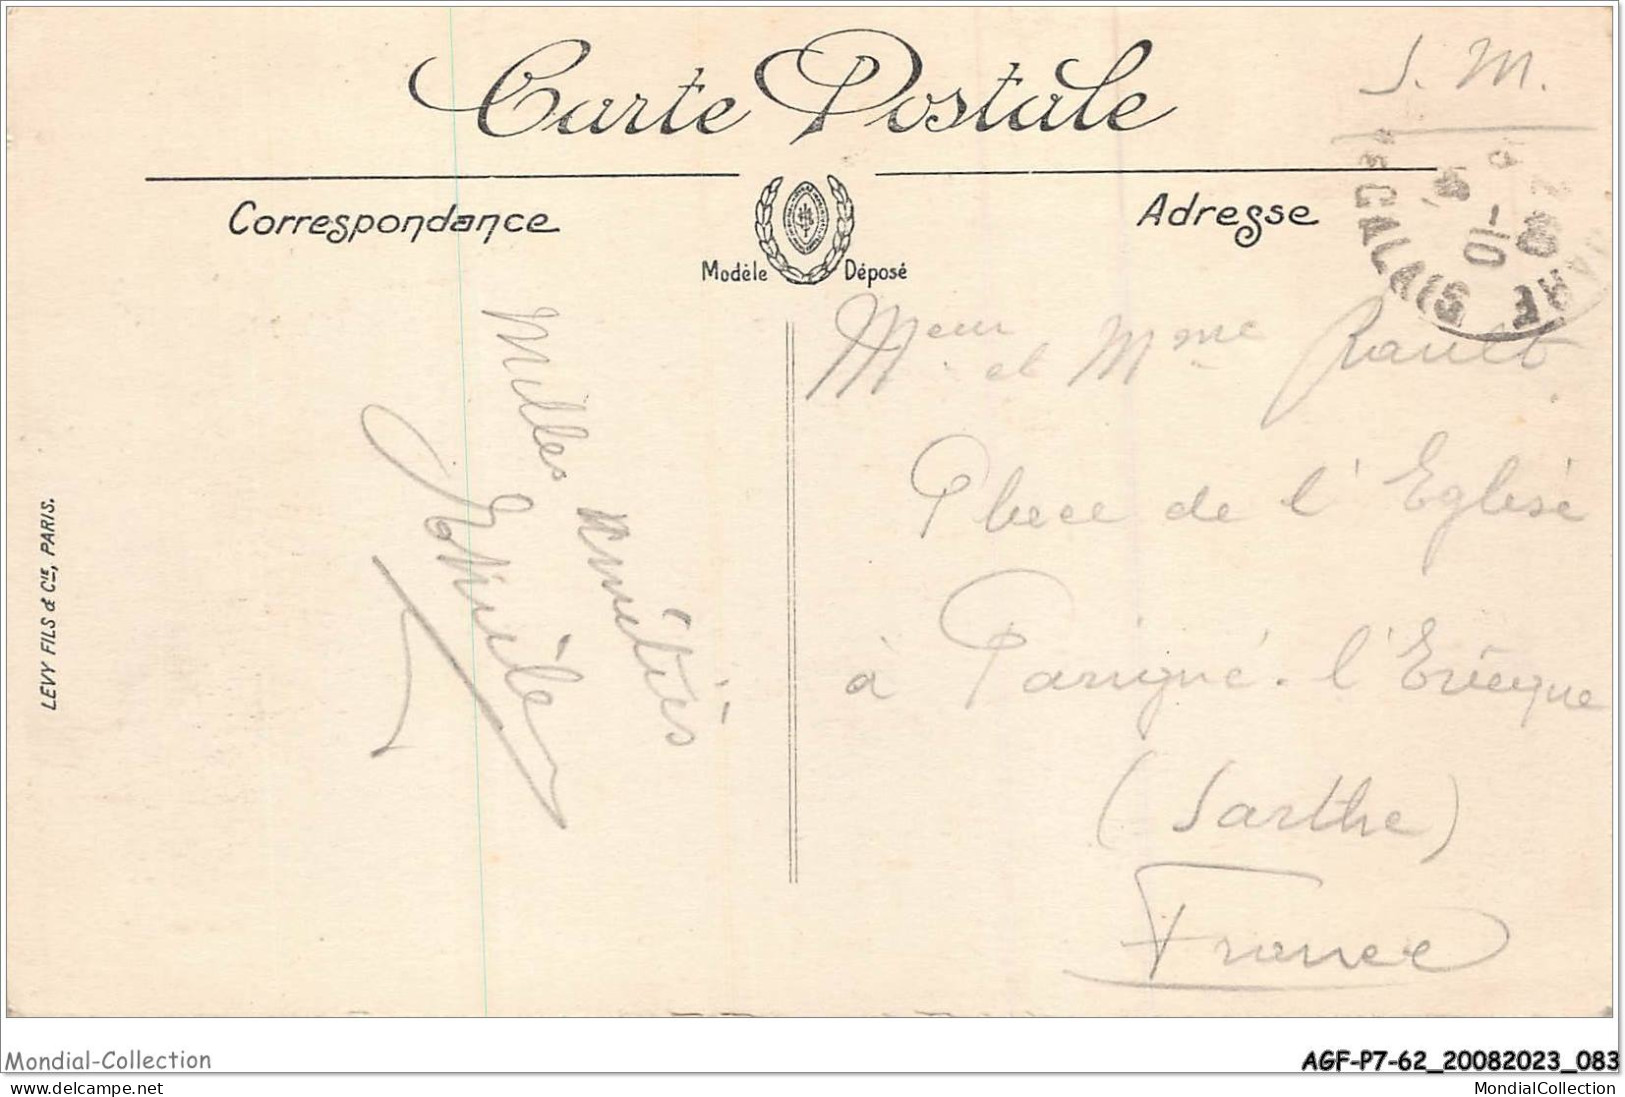 Carte Postale
S. M.
Correspondance
Adresse
Modèle Déposé
CALAIS
1-10
Milles amitiés
Meur et Mme Rault
Place de l'Eglise
à Parigné-l'Evêque
(Sarthe)
France
LEVY FILS & CIE, PARIS.
Mondial-Collection
AGF-P7-62_20082023_083
www.delcampe.net
MondialCollection